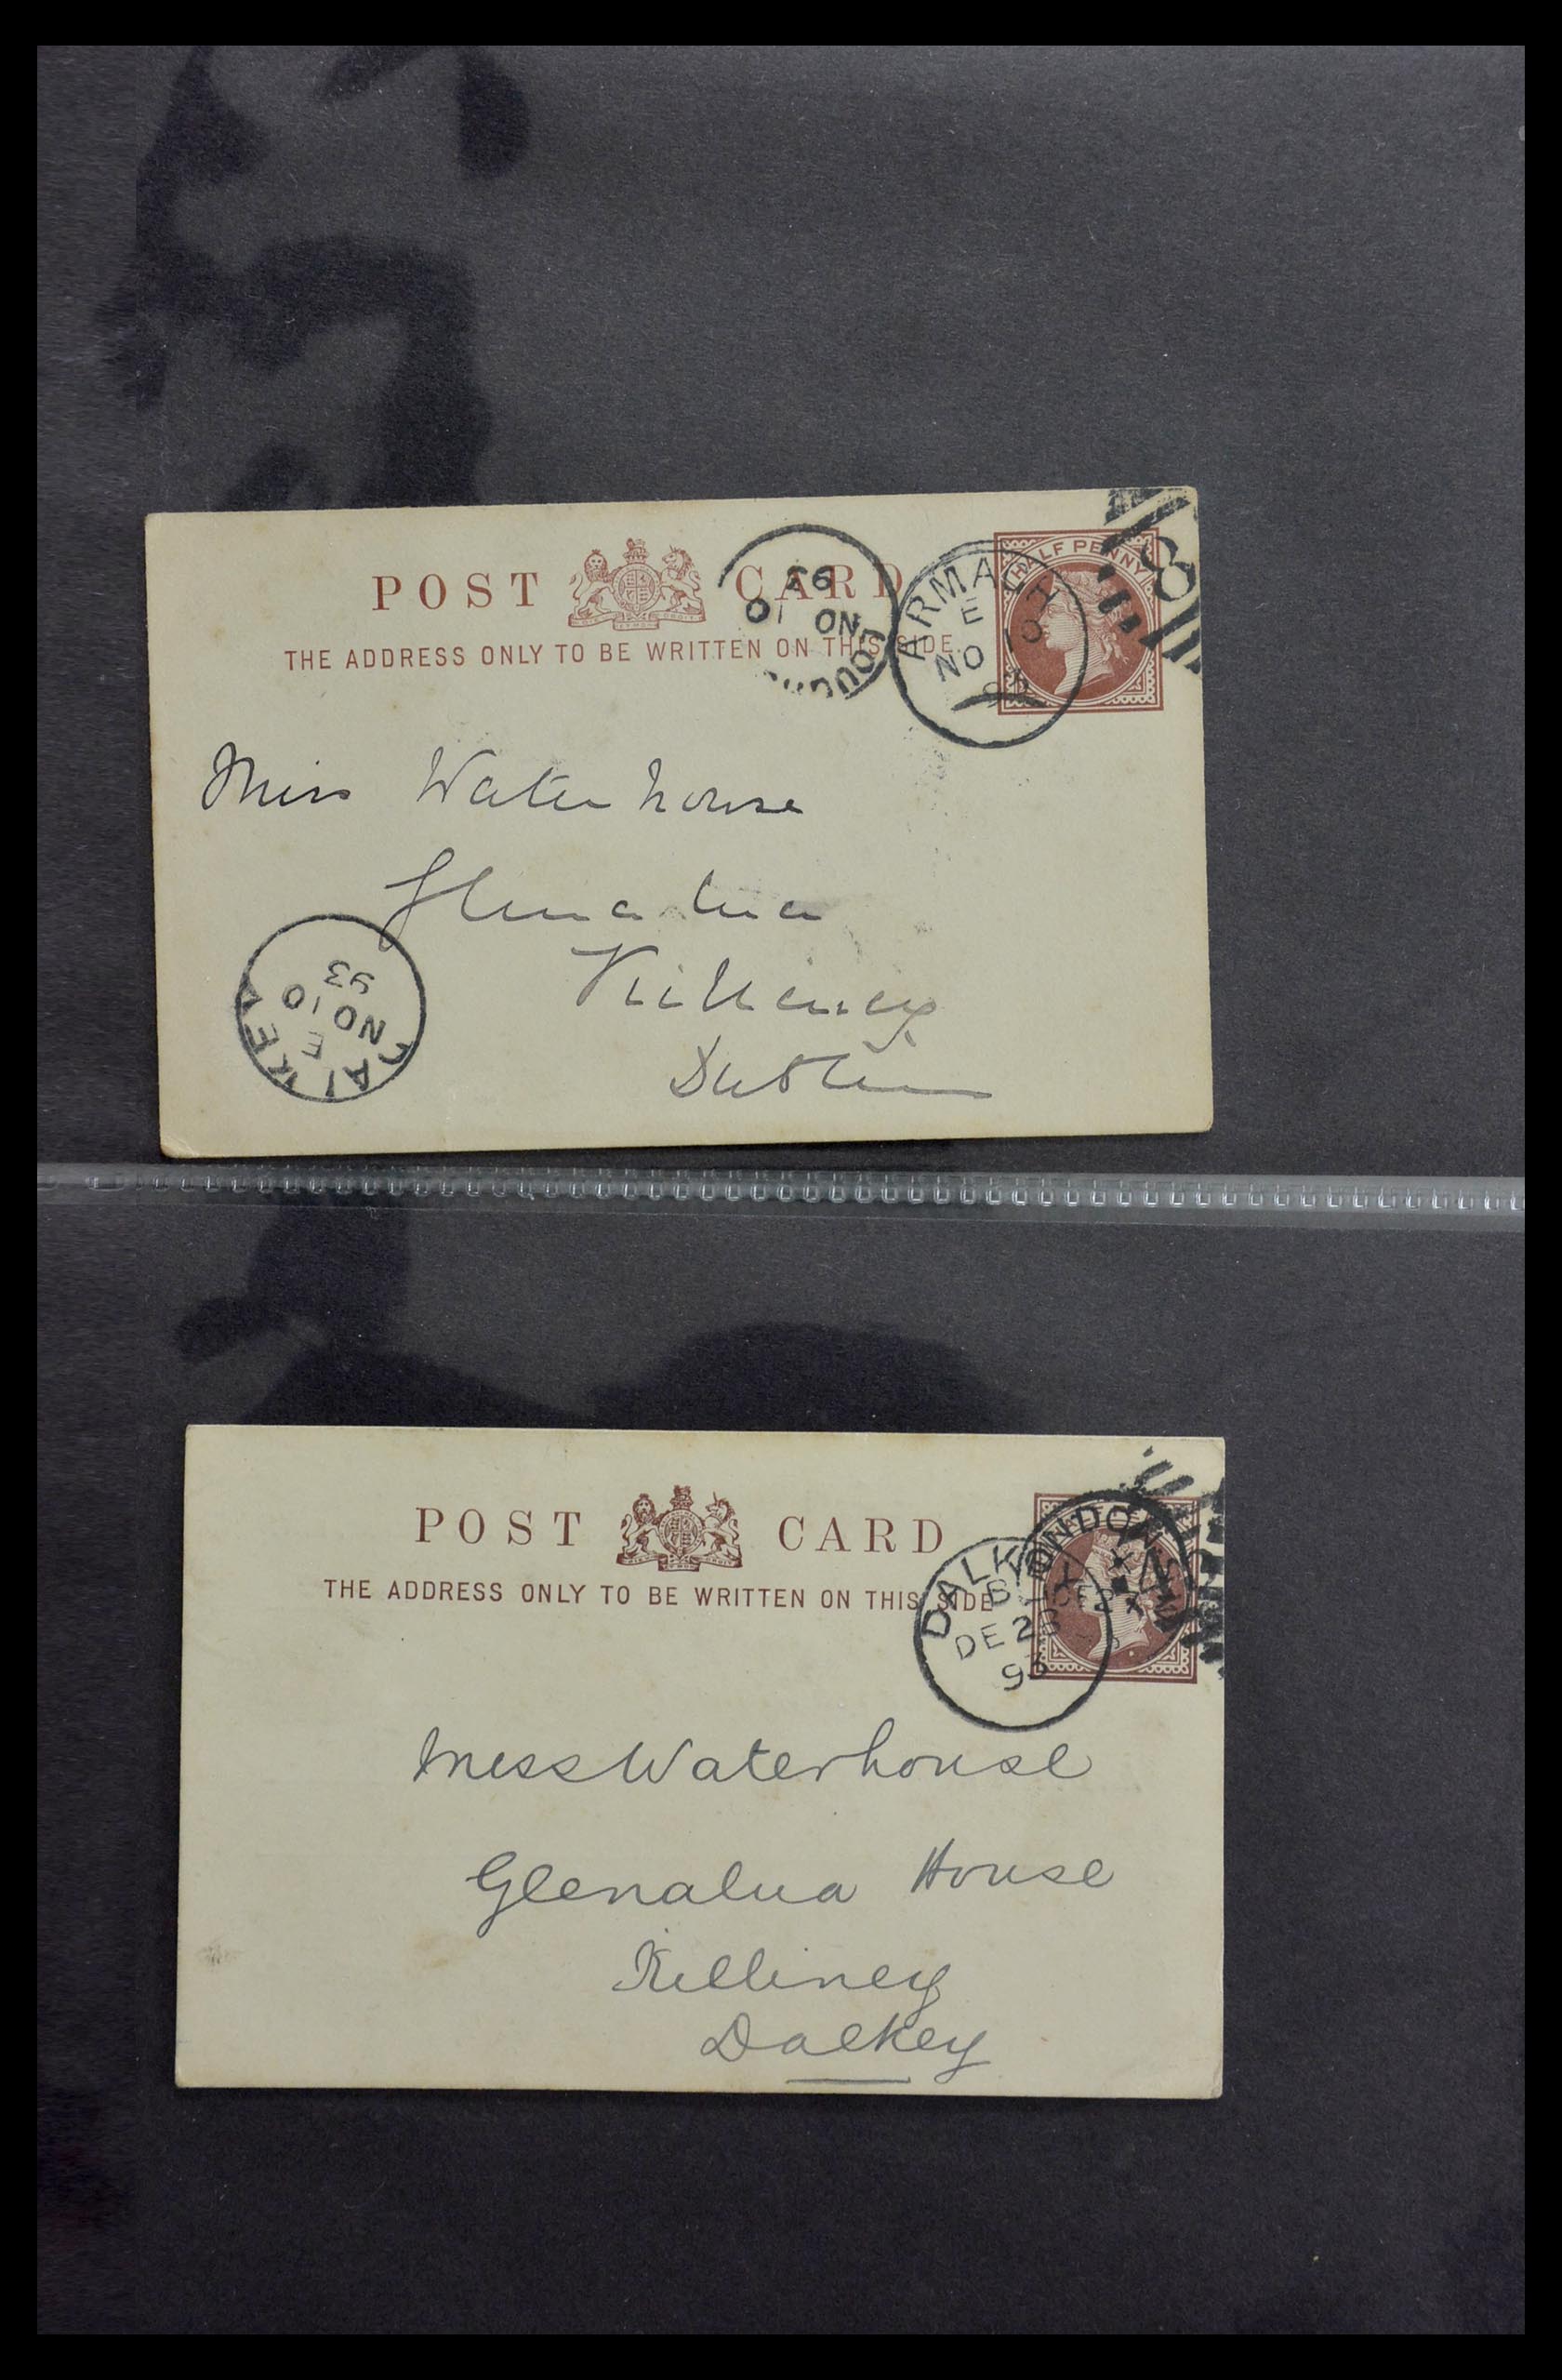 POST CARD
THE ADDRESS ONLY TO BE WRITTEN ON THIS SIDE.
HALF PENNY
ARMA
E
NO 10
93
NO 10
93
8
Miss Waterhouse
Glenalua
Killiney
Dublin
DALKEY
E
NO 10
93
POST CARD
THE ADDRESS ONLY TO BE WRITTEN ON THIS SIDE
DALK
B
DE 23
93
LONDON
Miss Waterhouse
Glenalua House
Killiney
Dalkey